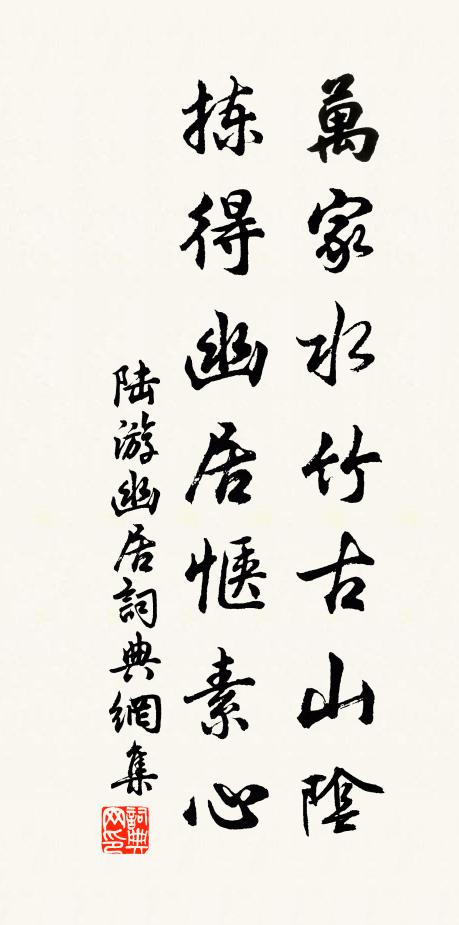 萬家水竹古山陰
拣得幽居惬素心
陆游幽居詞典網集
詞典网印